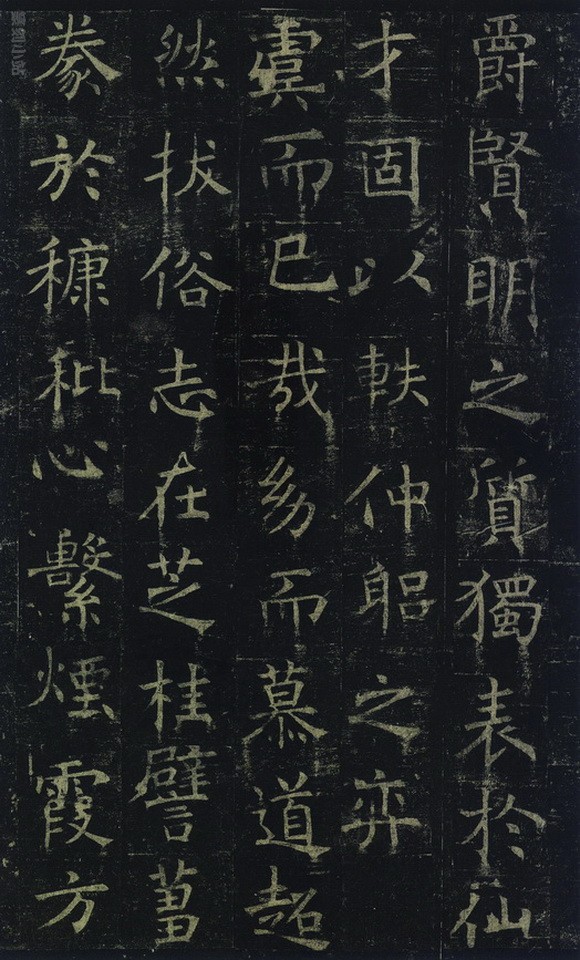 爵賢明之質獨表於仙
才固以軼仲躬之弈
虞而已哉幼而慕道超
然拔俗志在芝桂譬蒭
豢於穅秕心繫煙霞方